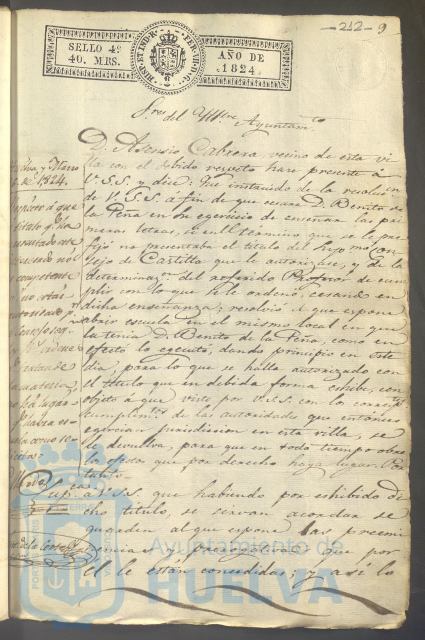 -212- 9
SELLO 4º
40. MRS.
HISP. ET IND. R. FERN. VII. D. G.
AÑO DE
1824.
S.res del Ill.tre Ayuntam.to
D. Asensio Cabrera, vecino de esta vi-
lla con el debido respeto hace presente á
V.S.S. y dice: Que instruido de la resoluc.on
de V.S.S. á fin de que cesara D. Benito de
la Peña en su egercicio de enseñar las pri-
meras letras, si en el término que se le pre-
fijó no presentaba el titulo del Sup.mo Con-
sejo de Castilla que le autorizase, y de la
determinaz.n del referido Profesor de cum-
plir con lo que se le ordenó, cesando en
dicha enseñanza; resolvió el que expone
abrir escuela en el mismo local en que
la tenia D. Benito de la Peña, como en
efecto lo egecuta, dando principio en este
dia, para lo que se halla autorizado con
el titulo que en debida forma exhibe, con
objeto á que visto por V.S.S. con los
cumplim.tos de las autoridades que entonces
egercian jurisdiccion en esta villa, se
le devuelva, para que en todo tiempo obre
los efectos que por derecho haya lugar. Por
tanto
Sup.ca á V.S.S. que habiendo por exhibido di-
cho titulo, se sirvan acordar se
guarden al que expone las preemi-
nencias y prerogativas que por
el le están concedidas; y así lo
y Marzo
1824.
á que
titulo
no
competente
autorizado
lugar
Ayuntamiento de
HUELVA